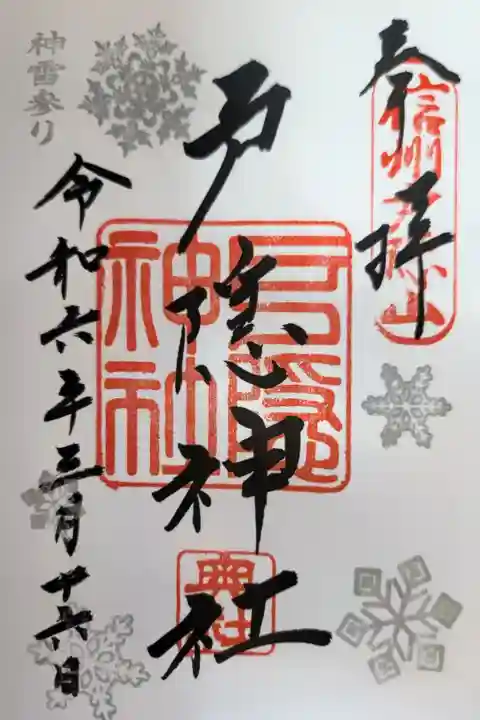 奉拝
信州戸隠山
戸隠神社
戸隠神社
奥社
令和六年三月十六日
神雪参り